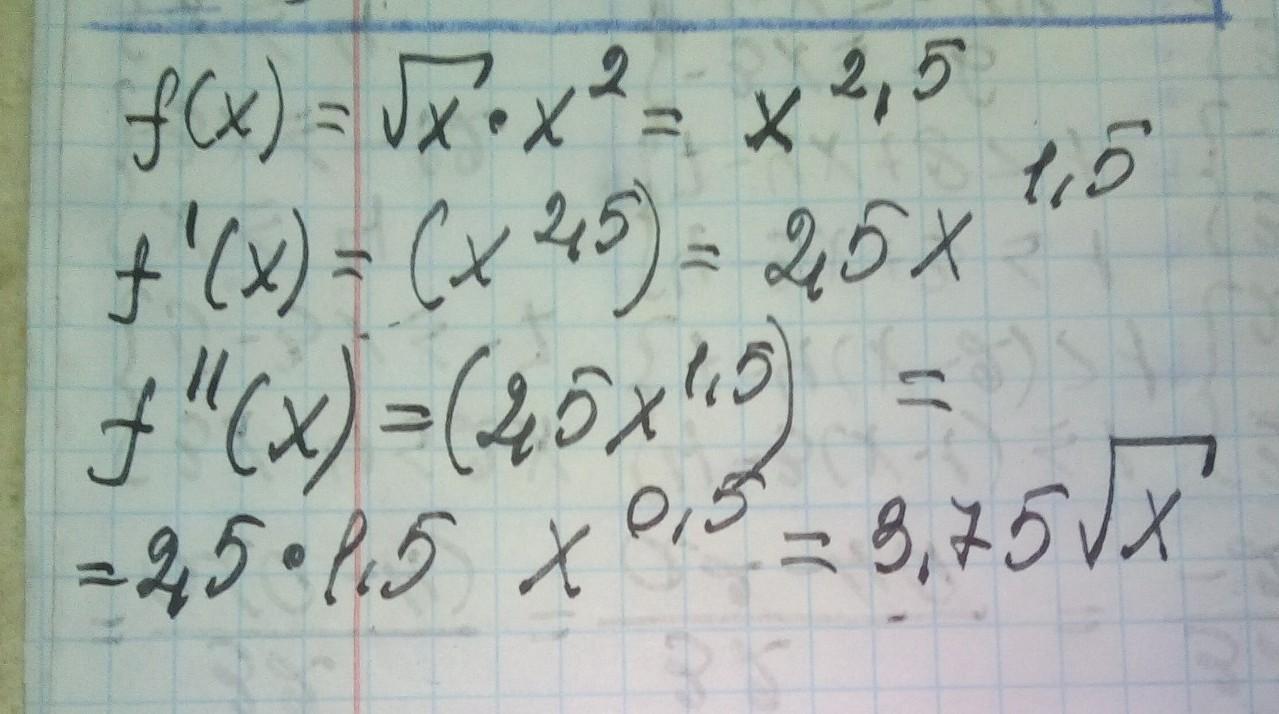 f(x) = √x · x^2 = x^2,5
f'(x) = (x^2,5) = 2,5x^1,5
f''(x) = (2,5x^1,5) =
= 2,5 · 1,5 x^0,5 = 3,75√x